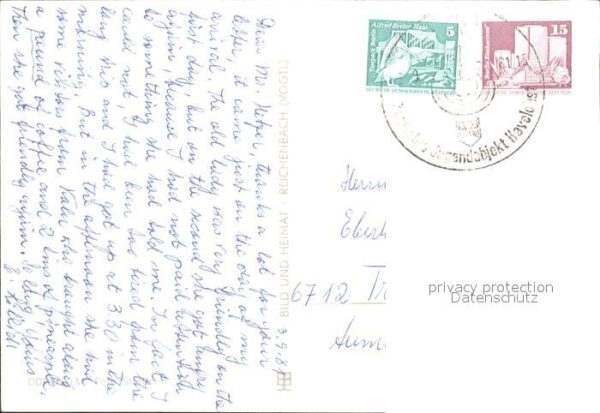 3.9.81
Dear Mr. thanks a lot for your
letter, it came just on the day of my
arrival. The old lady was very friendly on the
first day, but on the second she got angry
again, because I had not paid attention
to something she had told me. In fact I
could not, I had been too tired from the
long trip and I had got up at 3.30 in the
morning. But in the afternoon she had
some visitors from Köln who brought along
a pound of coffee and 2 tins of pineapple.
Then she got friendly again. So long, yours
E.
BILD UND HEIMAT REICHENBACH (VOGTL)
Tierpark Berlin
Alfred-Brehm-Haus
5
DEUTSCHE DEMOKRATISCHE REPUBLIK
15
Jugendobjekt Havelobst
Herrn
Eberh
6712 Tr
privacy protection
Datenschutz